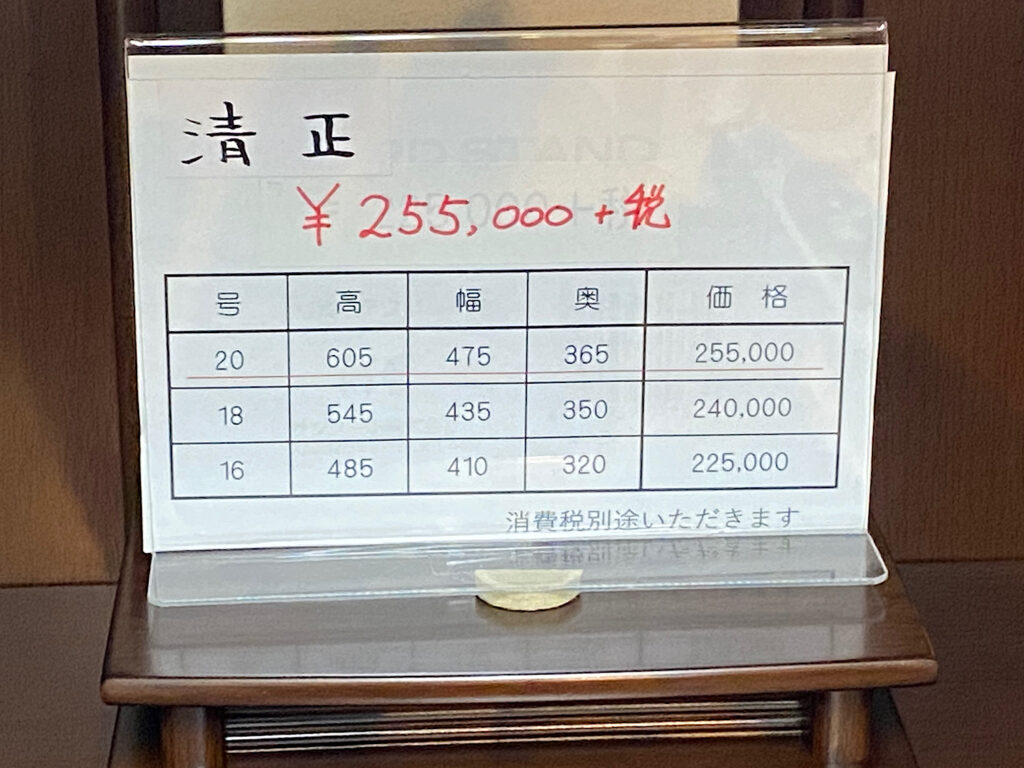 清 正
¥255,000+税
号 高 幅 奥 価 格
20 605 475 365 255,000
18 545 435 350 240,000
16 485 410 320 225,000
消費税別途いただきます